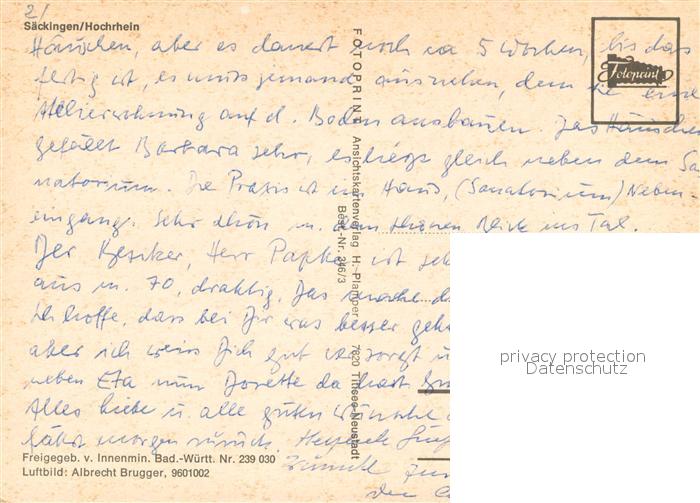 2/
Säckingen/Hochrhein
Häuschen, aber es dauert noch ca 5 Wochen, bis das
fertig ist, es muss jemand ausziehen, dem sie eine
Atelierwohnung auf d. Boden ausbauen. Das Häuschen
gefällt Barbara sehr, es liegt gleich neben dem Sa-
natorium. Die Praxis ist im Haus, (Sanatorium) Neben-
eingang. Sehr schön m. dem schönen Blick ins Tal.
Der Besitzer, Herr Papke ist
aus m. 70, drahtig. Das macht
Ich hoffe, dass bei Dir was besser
aber ich weiss Dich gut versorgt u
neben Eta nun Dorette da hast
Alles Liebe u. alle guten Wünsche
fährt morgen zurück. Herzlich
FOTOPRINT Ansichtskartenverlag H. Plamper 7820 Titisee-Neustadt
Best.-Nr. 346/3
Fotoprint
privacy protection
Datenschutz
Freigegeb. v. Innenmin. Bad.-Württ. Nr. 239 030
Luftbild: Albrecht Brugger, 9601002